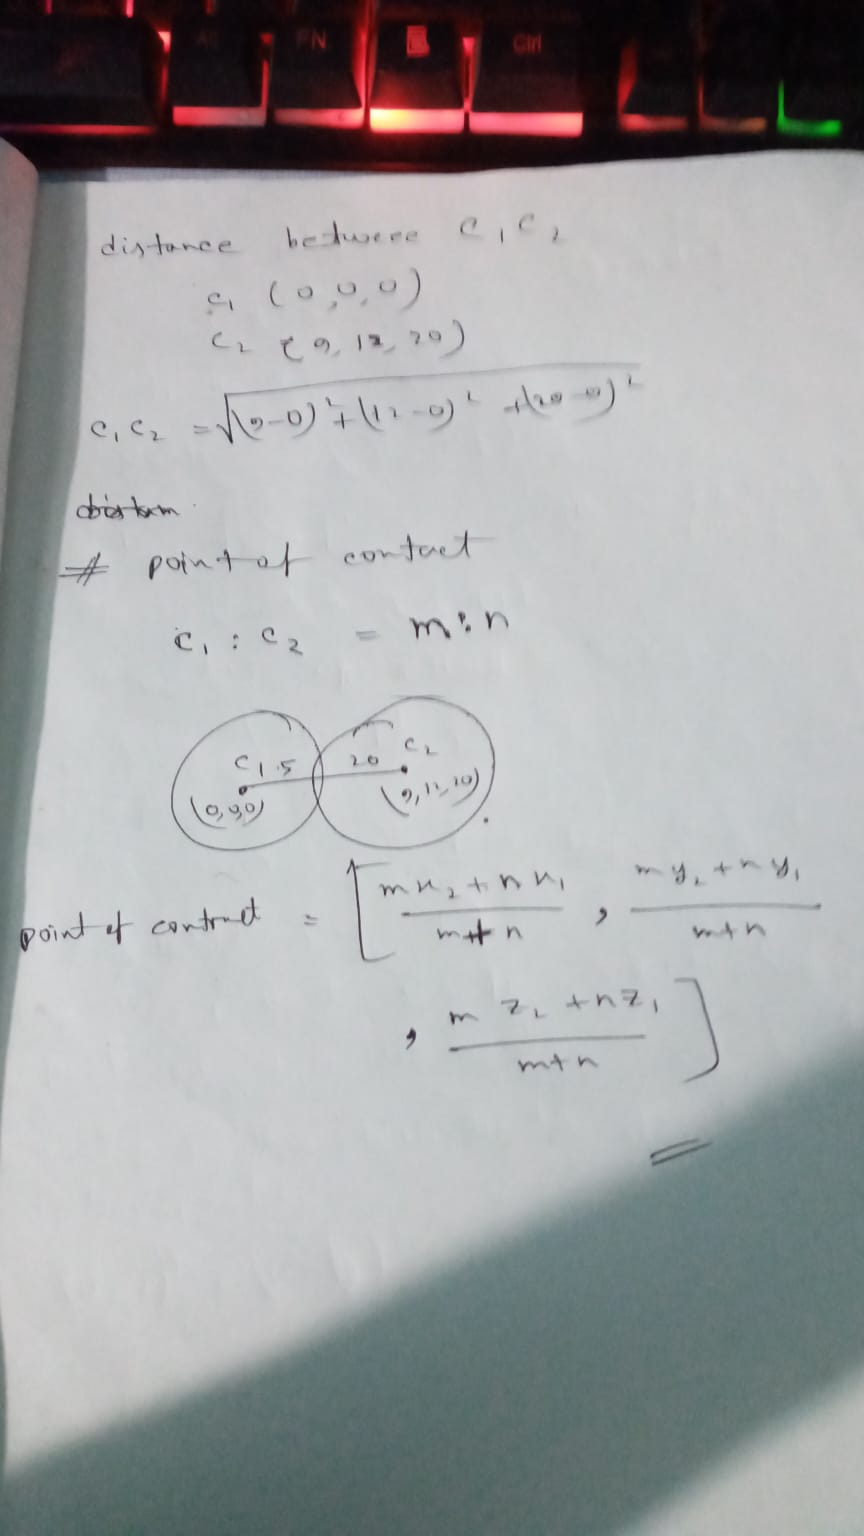 Alt FN Ctrl
distance between C₁C₂
C₁ (0,0,0)
C₂ (9, 12, 20)
C₁C₂ = √(9-0)²+(12-0)²+(20-0)²
# point of contact
C₁ : C₂ = m:n
C₁ 5 20 C₂
(0,0,0) (9,12,20)
point of contract = [ mx₂+nx₁ / m+n , my₂+ny₁ / m+n
, mz₂+nz₁ / m+n ]